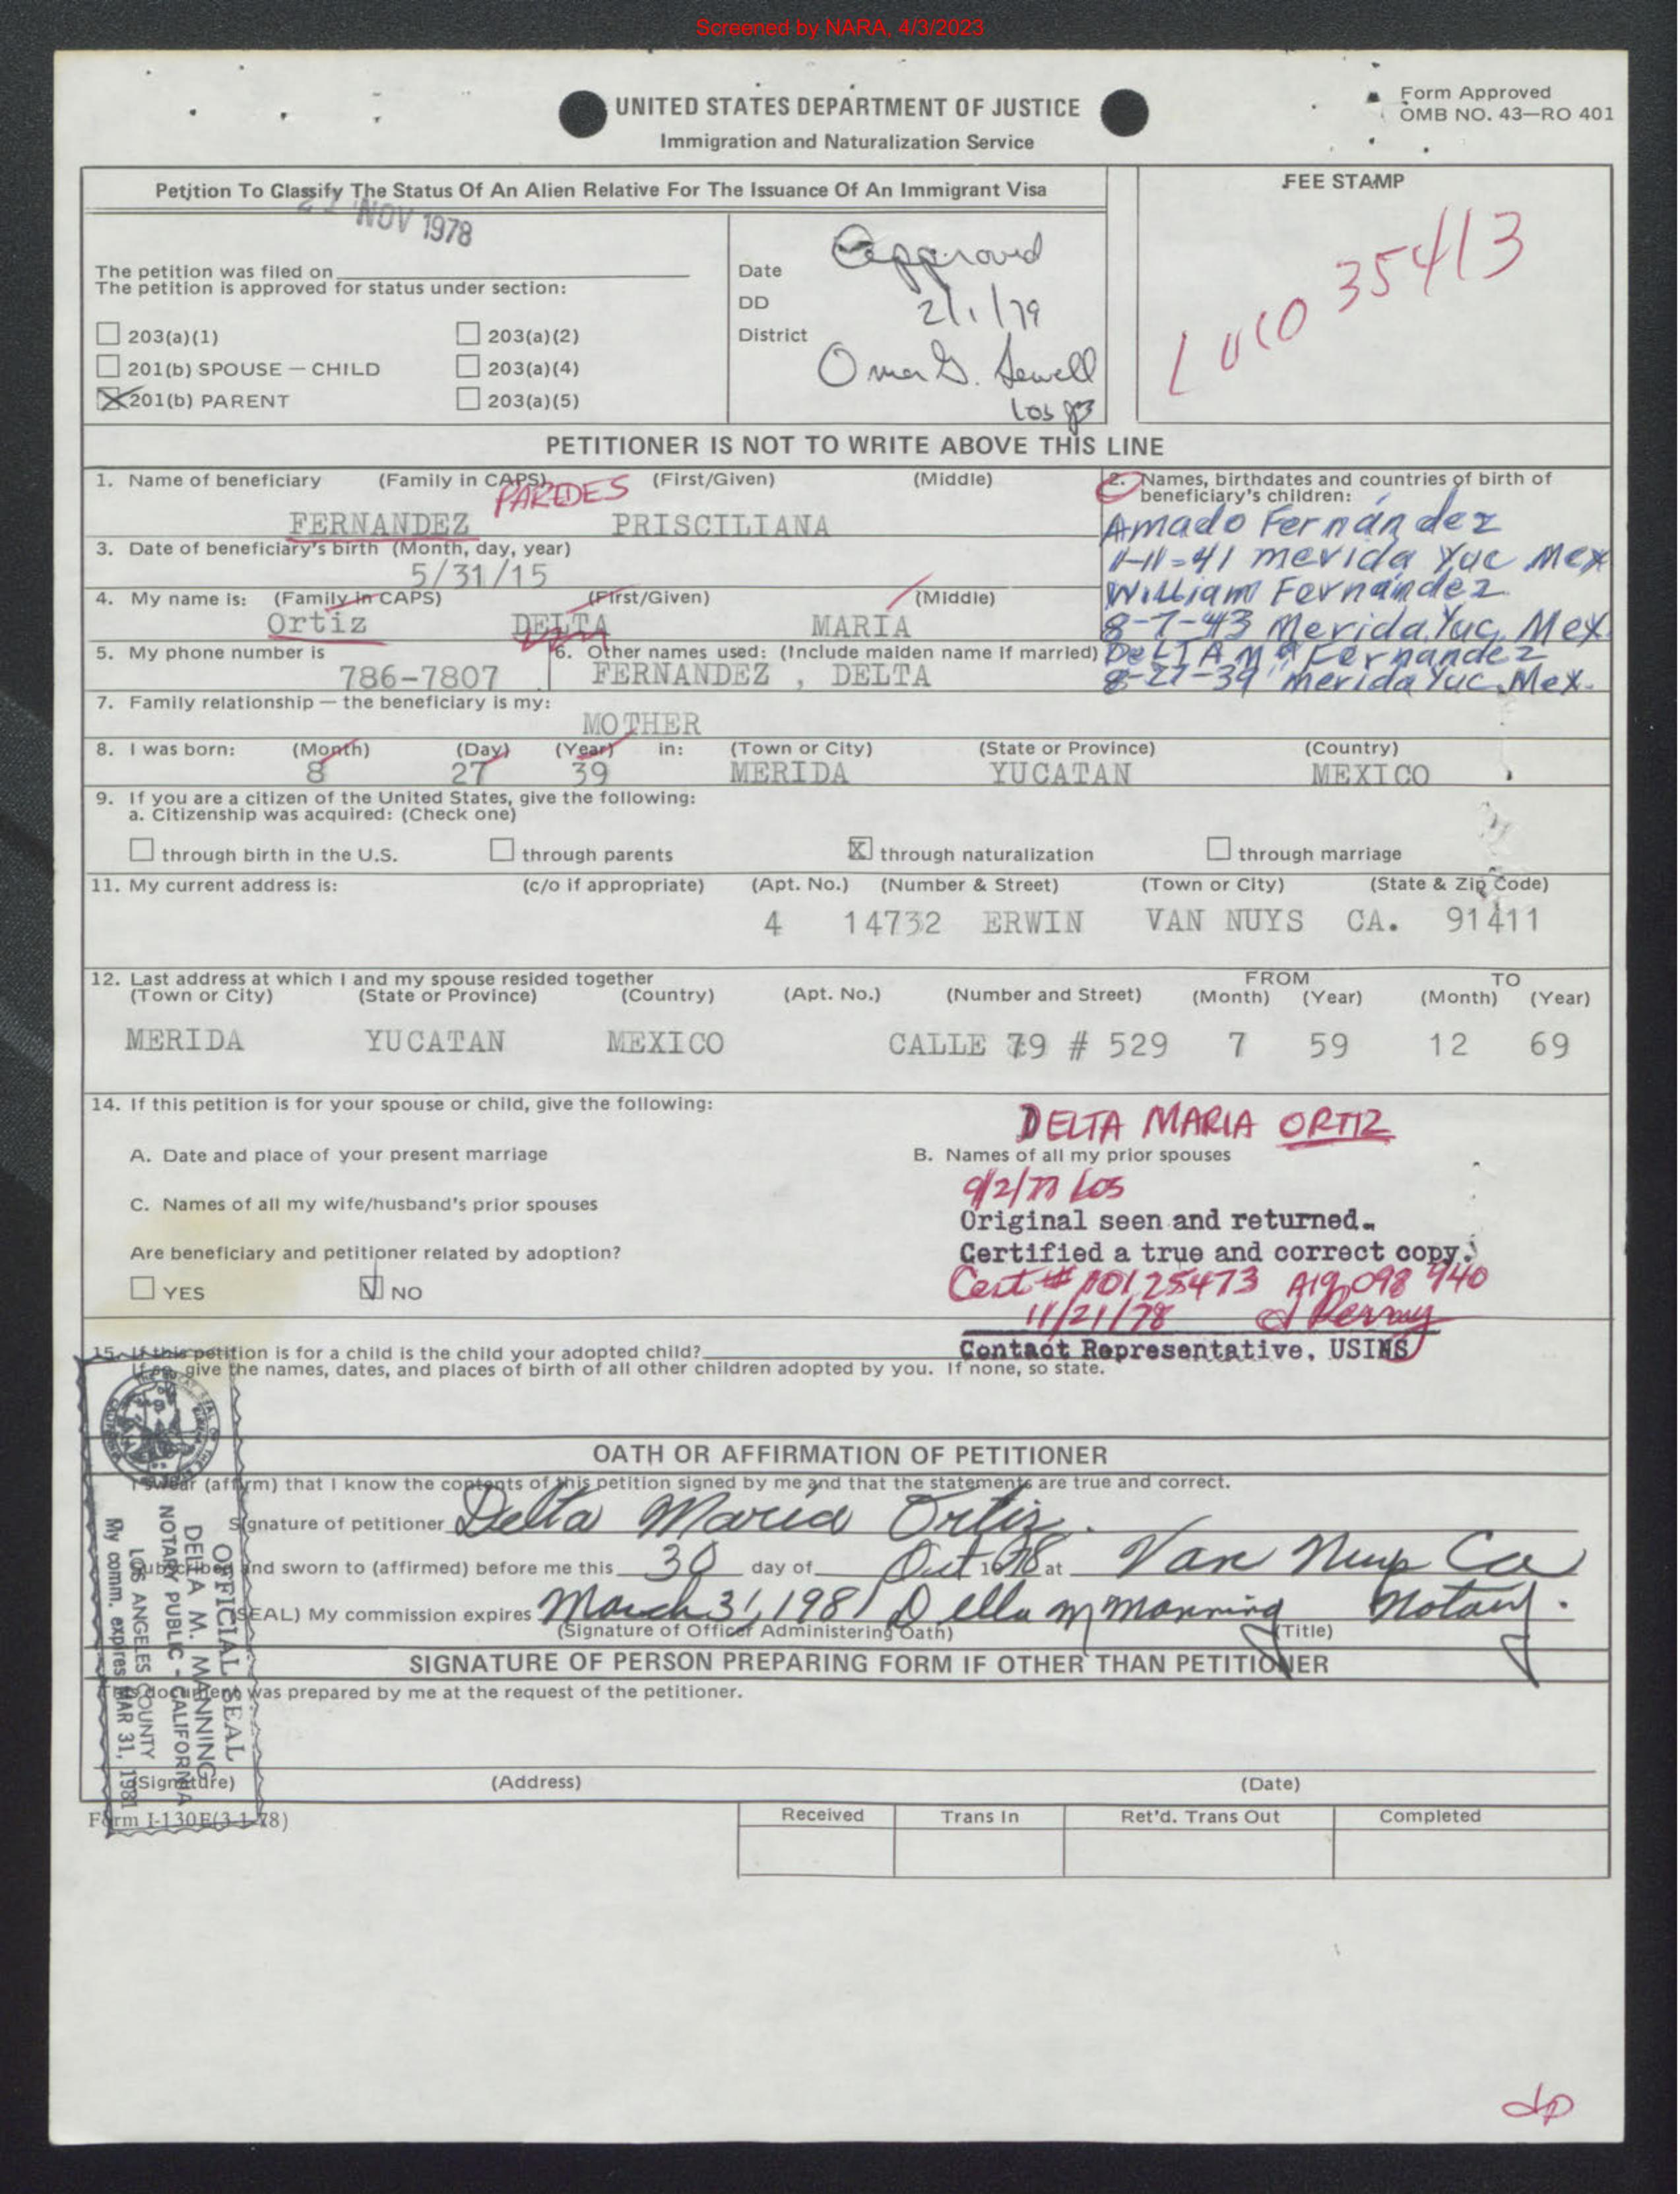 Screened by NARA, 4/3/2023
UNITED STATES DEPARTMENT OF JUSTICE
Immigration and Naturalization Service
Form Approved
OMB NO. 43—RO 401
Petition To Classify The Status Of An Alien Relative For The Issuance Of An Immigrant Visa
FEE STAMP
NOV 1978
The petition was filed on
The petition is approved for status under section:
203(a)(1)
203(a)(2)
201(b) SPOUSE — CHILD
203(a)(4)
201(b) PARENT
203(a)(5)
Date
DD
District
Approved
2/1/79
Omer G. Sewell
Los
35413
PETITIONER IS NOT TO WRITE ABOVE THIS LINE
1. Name of beneficiary (Family in CAPS) (First/Given) (Middle)
PAREDES
FERNANDEZ PRISCILIANA
2. Names, birthdates and countries of birth of
beneficiary's children:
Amado Fernández
11-11-41 merida Yuc Mex
William Fernández
8-7-43 Merida, Yuc, Mex.
DELTA Ma Fernandez
8-27-39 merida Yuc. Mex.
3. Date of beneficiary's birth (Month, day, year)
5/31/15
4. My name is: (Family in CAPS) (First/Given) (Middle)
Ortiz DELTA MARIA
5. My phone number is
786-7807
6. Other names used: (Include maiden name if married)
FERNANDEZ , DELTA
7. Family relationship — the beneficiary is my:
MOTHER
8. I was born: (Month) (Day) (Year) in: (Town or City) (State or Province) (Country)
8 27 39 MERIDA YUCATAN MEXICO
9. If you are a citizen of the United States, give the following:
a. Citizenship was acquired: (Check one)
through birth in the U.S. through parents X through naturalization through marriage
11. My current address is: (c/o if appropriate) (Apt. No.) (Number & Street) (Town or City) (State & Zip Code)
4 14732 ERWIN VAN NUYS CA. 91411
12. Last address at which I and my spouse resided together FROM TO
(Town or City) (State or Province) (Country) (Apt. No.) (Number and Street) (Month) (Year) (Month) (Year)
MERIDA YUCATAN MEXICO CALLE 79 # 529 7 59 12 69
14. If this petition is for your spouse or child, give the following:
DELTA MARIA ORTIZ
A. Date and place of your present marriage
B. Names of all my prior spouses
9/2/77 Los
C. Names of all my wife/husband's prior spouses
Original seen and returned.
Are beneficiary and petitioner related by adoption?
Certified a true and correct copy.
YES NO
Cert # 10125473 A19 098 940
11/21/78
15. If this petition is for a child is the child your adopted child?
Contact Representative, USINS
If so, give the names, dates, and places of birth of all other children adopted by you. If none, so state.
OATH OR AFFIRMATION OF PETITIONER
I swear (affirm) that I know the contents of this petition signed by me and that the statements are true and correct.
Signature of petitioner Delta Maria Ortiz.
Subscribed and sworn to (affirmed) before me this 30 day of Oct 1978 at Van Nuys Ca
(SEAL) My commission expires March 31, 1981 Della M Manning Notary.
(Signature of Officer Administering Oath) (Title)
SIGNATURE OF PERSON PREPARING FORM IF OTHER THAN PETITIONER
This document was prepared by me at the request of the petitioner.
(Signature) (Address) (Date)
OFFICIAL SEAL
DELLA M. MANNING
NOTARY PUBLIC - CALIFORNIA
LOS ANGELES COUNTY
My comm. expires MAR 31, 1981
Form I-130E(3-1-78)
Received Trans In Ret'd. Trans Out Completed